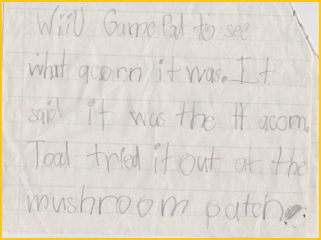 WiiU GamePad to see
what acorn it was. It
said it was the H acorn.
Toad tried it out at the
mushroom patch.